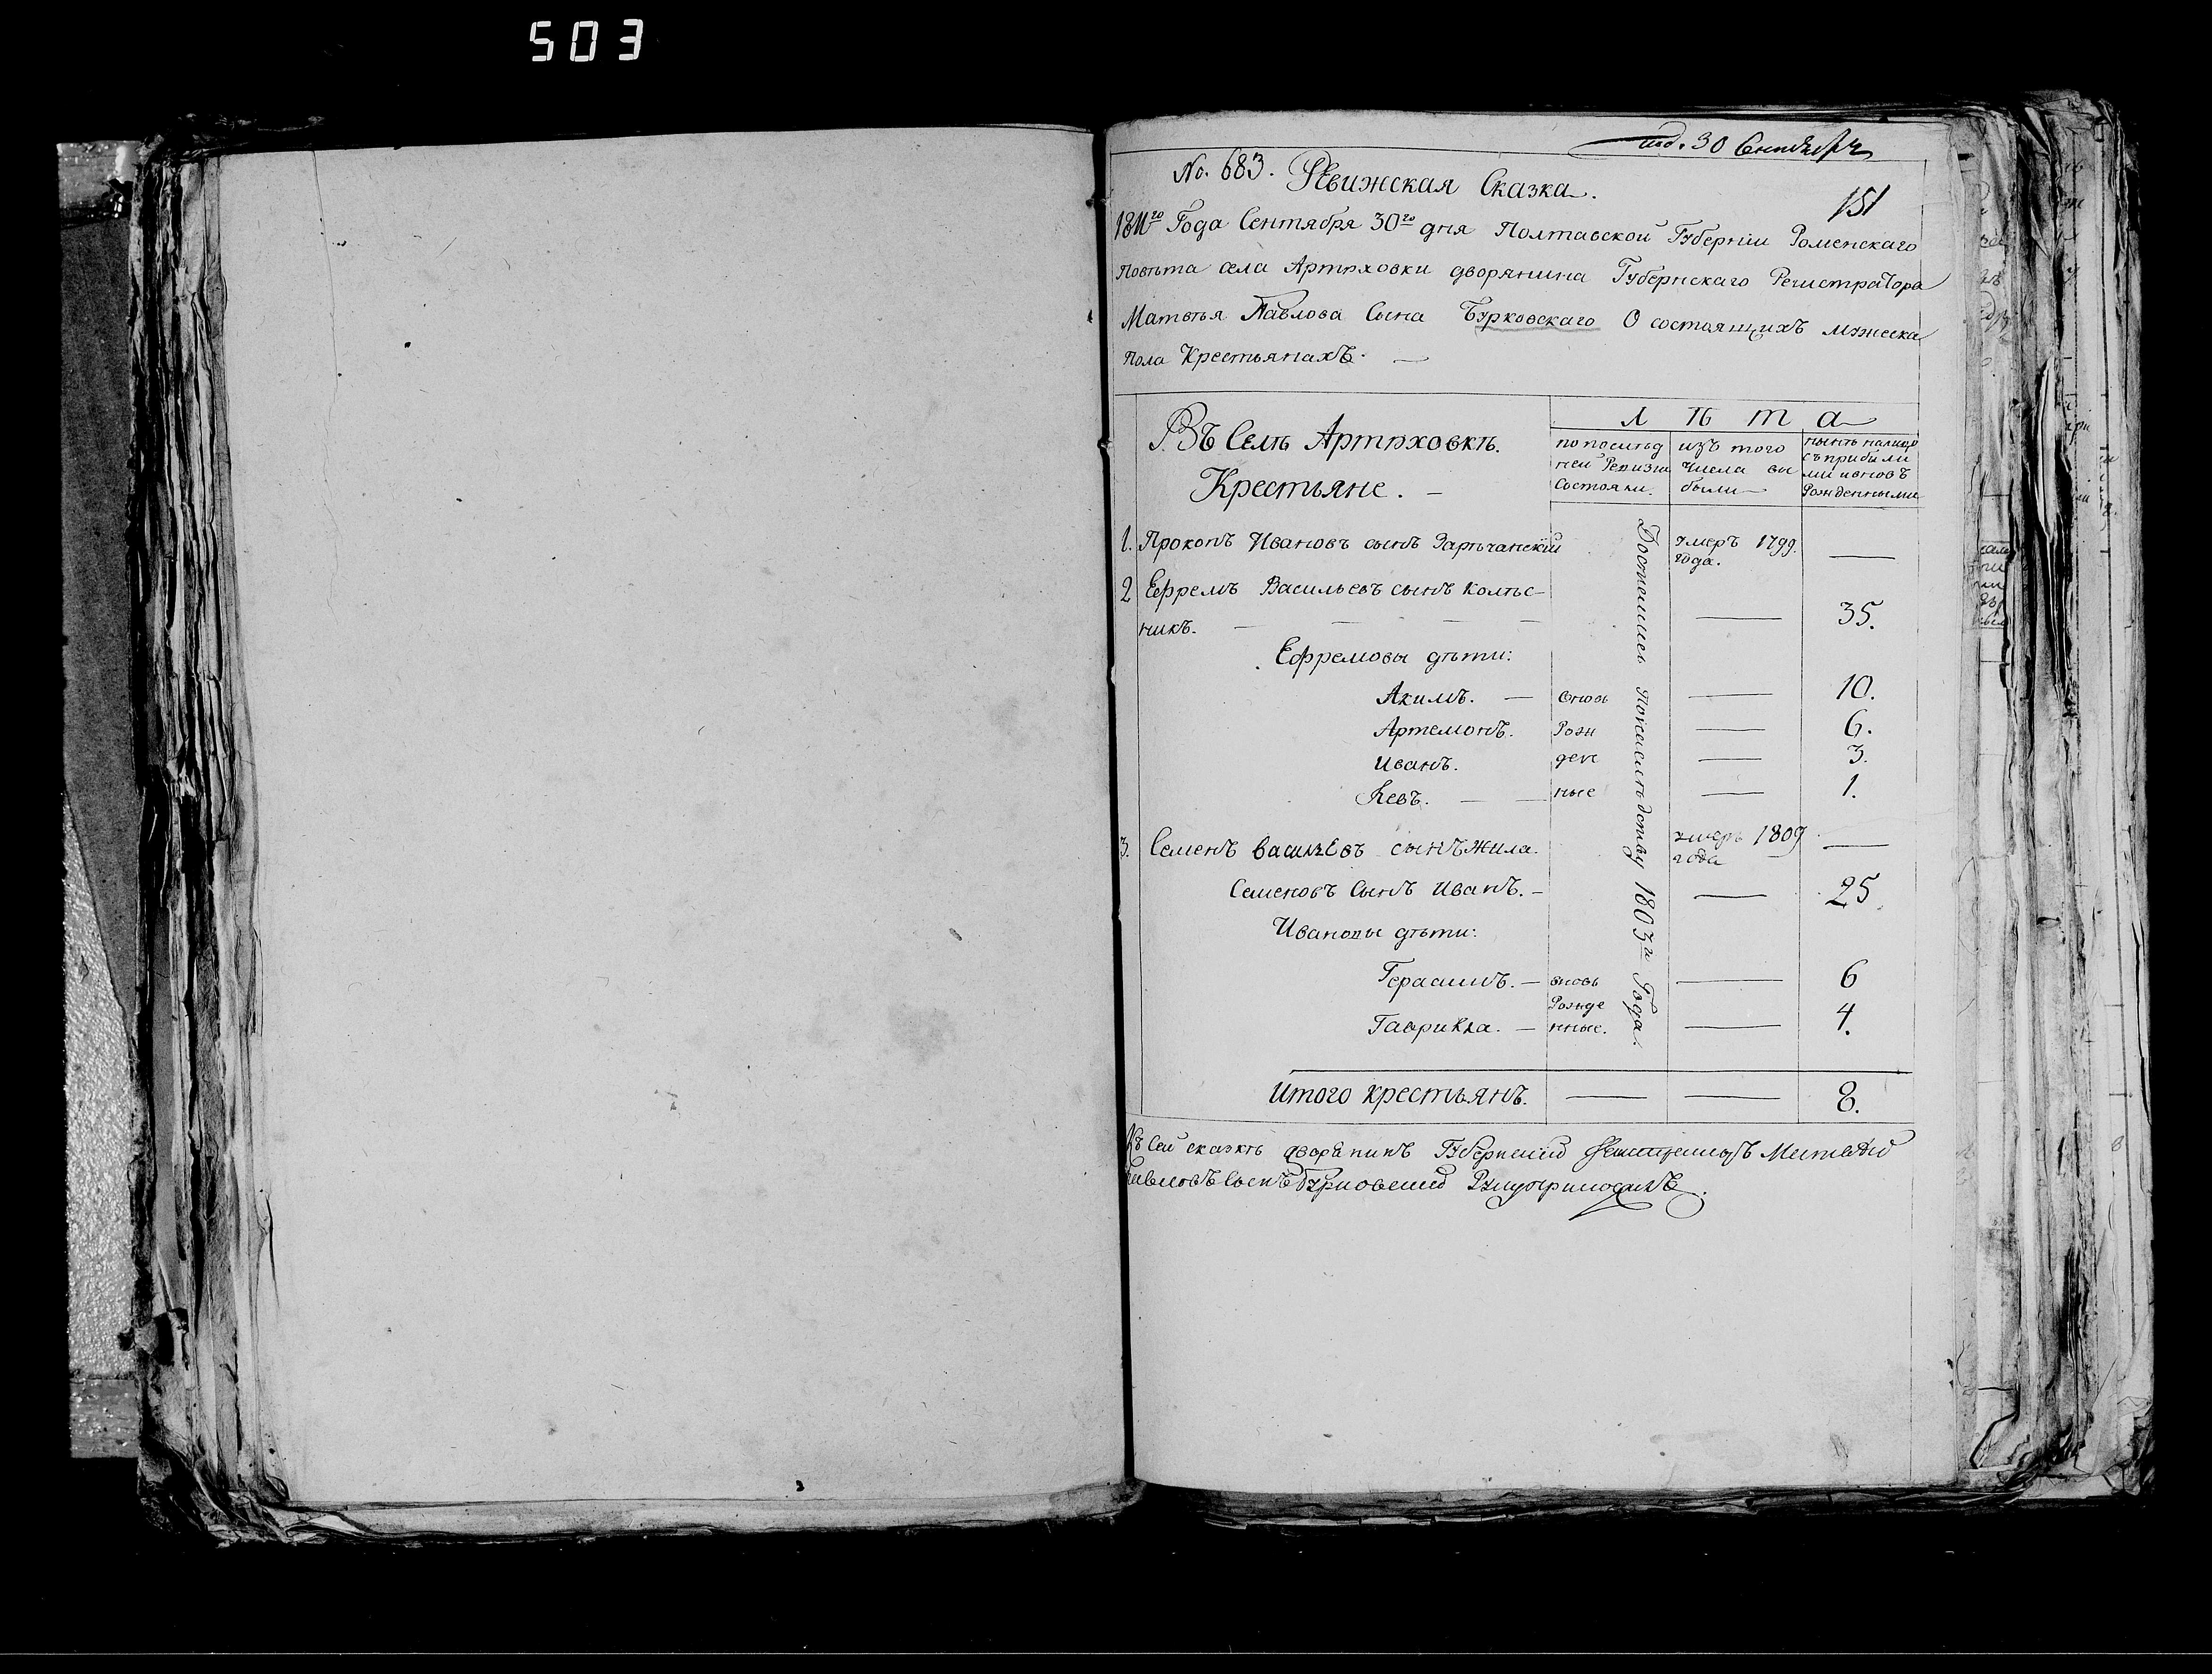 503
под. 30 Сентября
No. 683. Ревижская Сказка.
151
1811го Года Сентября 30го дня Полтавской Губернии Роменскаго
Повѣта села Артюховки дворянина Губернскаго Регистратора
Матвѣя Павлова Сына Бурковскаго О состоящихъ мужеска
пола Крестьянахъ. —
Въ Селѣ Артюховкѣ.
Крестьяне. —
Л ѣ т а
по послѣд
ней Ревизии
Состояли.
изъ того
Числа вы
были
нынѣ налицо
съ прибылы
ми и вновъ
Рожденными
1. Прокопъ Ивановъ сынъ Зарѣчанский умеръ 1799. —
года.
2 Ефремъ Васильевъ сынъ Колѣс-
никъ. — — — — — 35.
Ефремовы дѣти:
Акимъ. — вновь — 10.
Артемонъ. Рож — 6.
Иванъ. ден — 3.
Левъ. — — ные — 1.
3. Семенъ Васильевъ сынъ Жила. умеръ 1809 —
года
Семеновъ Сынъ Иванъ. — — 25
Ивановы дѣти:
Герасимъ. — вновь — 6
Рожде
Гаврила. — нные. — 4.
Достались По наслѣдству 1803го Года.
Итого крестьянъ. — — 8.
Къ Сей сказкѣ дворянинъ Губернский Регистраторъ Матвѣй
Павловъ Сынъ Бурковский Руку приложилъ.